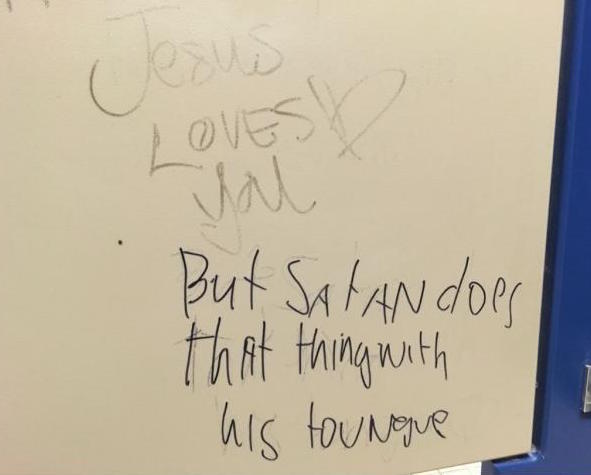 Jesus
LOVES
you
But SAtAN does
that thing with
his toungue